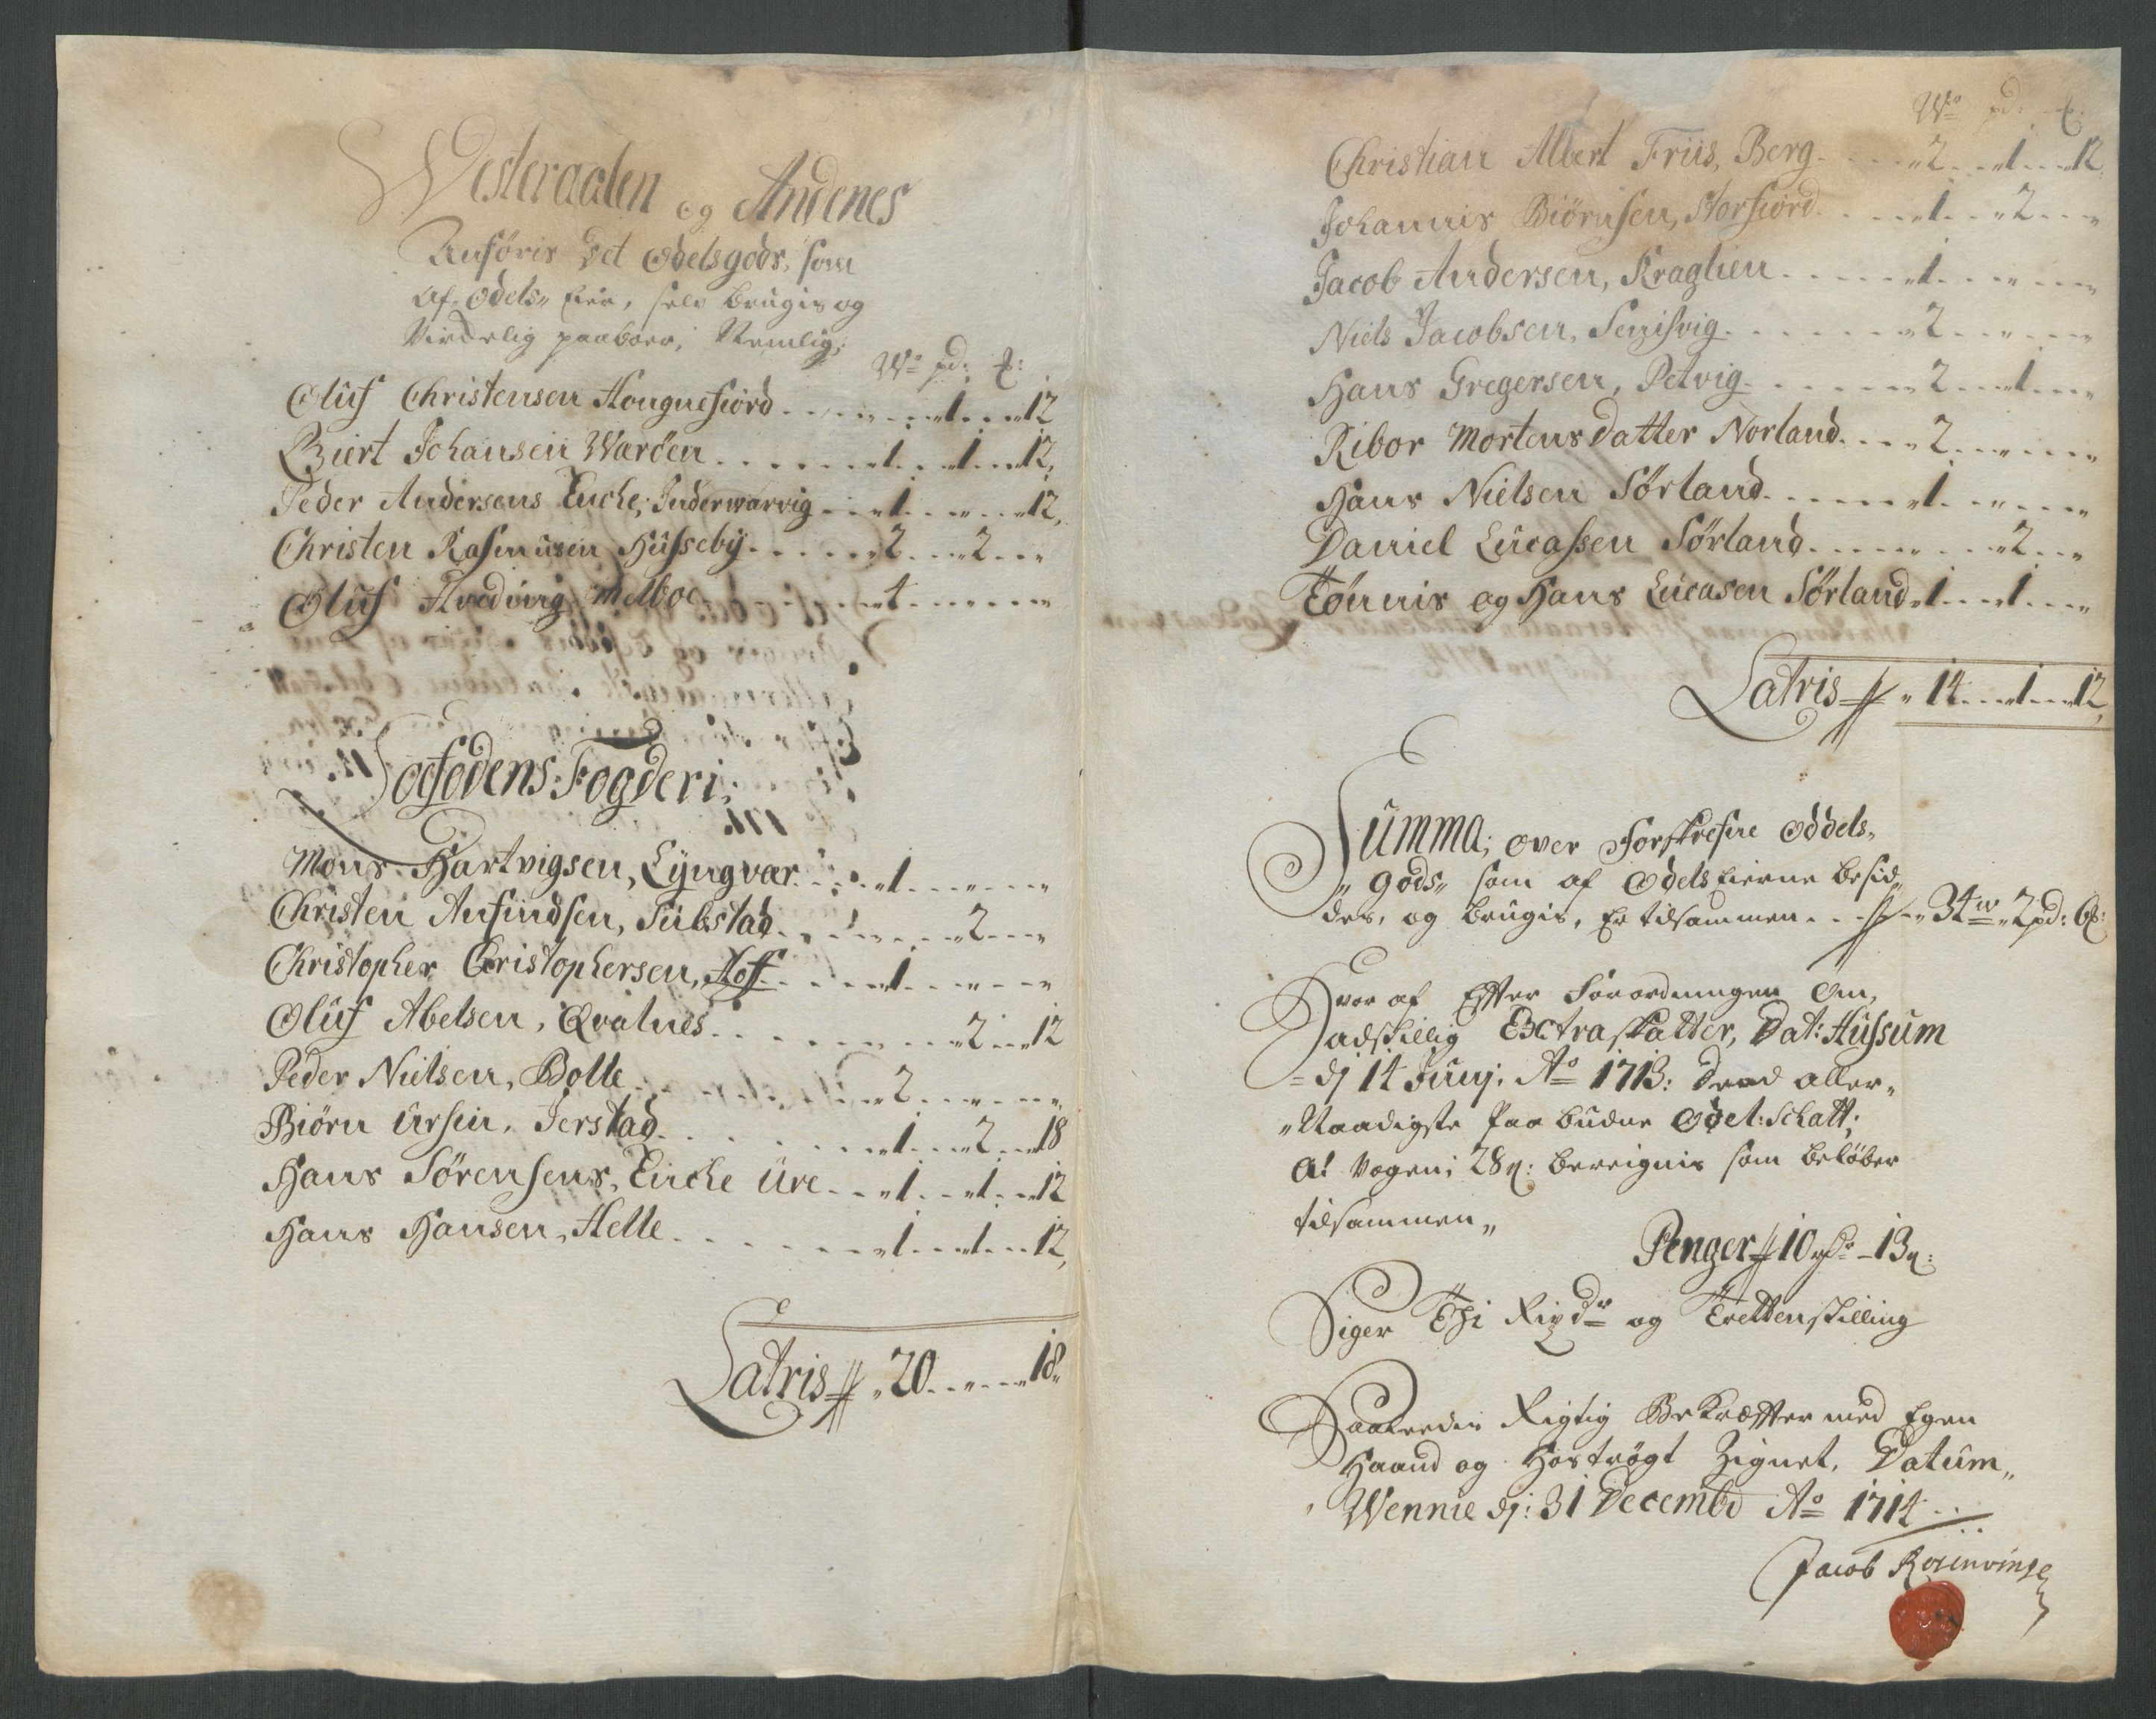 Westeraalen og Andenes
Anföris det Odelsgods, som
af Odels Eier, selv brugis og
Virdelig paaboer, Nemlig;
Wo pd: ₶:
Oluf Christensen Hougnefiord - - - - „ - - „1 - - „12
Biert Johansen Waröen - - - - „1 - - „1 - - „12,
Peder Andersens Encke, Inderwarvig - - „1 - - „ - - „12,
Christen Rasmusen Hüsseby - - - - „2 - - „2 - - „
Oluf Hvedving Melboe - - - - „4 - - „ - - „
Lofodens Fogderi;
Mons Hartvigsen, Lyngvær - - - - „1 - - „ - - „
Christen Anfindsen, Sübstad - - - - „ - - „2 - - „
Christopher Christophersen, Hoff - - - - „1 - - „ - - „
Oluf Abelsen, Qvalnes - - - - „ - - „2 - - „12
Peder Nielsen, Bolle - - - - „2 - - „ - - „
Biörn Ursin, Jerstad - - - - „1 - - „2 - - „18
Hans Sörensens, Encke Ure - - - „1 - - „1 - - „12
Hans Hansen, Helle - - - - „1 - - „1 - - „12,
Latris „20 - - „ - - „18„
Wo pd: ₶:
Christian Albert Friis, Berg - - - - „2 - - „1 - - „12,
Johannis Biörnsen, Storfiord - - - - „1 - - „2 - - „
Jacob Andersen, Kraglien - - - - „1 - - „ - - „
Niels Jacobsen, Senisvig - - - - „2 - - „ - - „
Hans Gregersen, Petvig - - - - „2 - - „1 - - „
Kibor Mortensdatter Norland - - - „2 - - „ - - „
Hans Nielsen Sörland - - - - „1 - - „ - - „
Daniel Lucassen Sörland - - - - „ - - „2 - - „
Tönnis og Hans Lucasen Sörland „1 - - „1 - - „
Latris „14 - - „1 - - „12,
Summa, over Forskrefne Oddels„
„gods„ som af Odels Eierne besid„
des, og brugis, Er tilsammen - - „34 w „2 pd: 6 ₶:
Hvor af Efter Forordningen Om,
adskillig Extraskatter, Dat: Hussum
dj 14 Junj: Ao 1713: Derod aller„
„Naadigste Paabudne Odel: Schatt;
At Vogen; 28 s: bereignis som beløber
tilsammen„
Penger 10 rdr - 13 s:
Siger Thi Rixdr og Trettenskilling
Saaledis Rigtig Bekræfter med Egen
Haand og Hoströgt Zignet, Datum„
Wennie dj: 31 Decembr Ao 1714 - - -
Jacob Rosenvinge